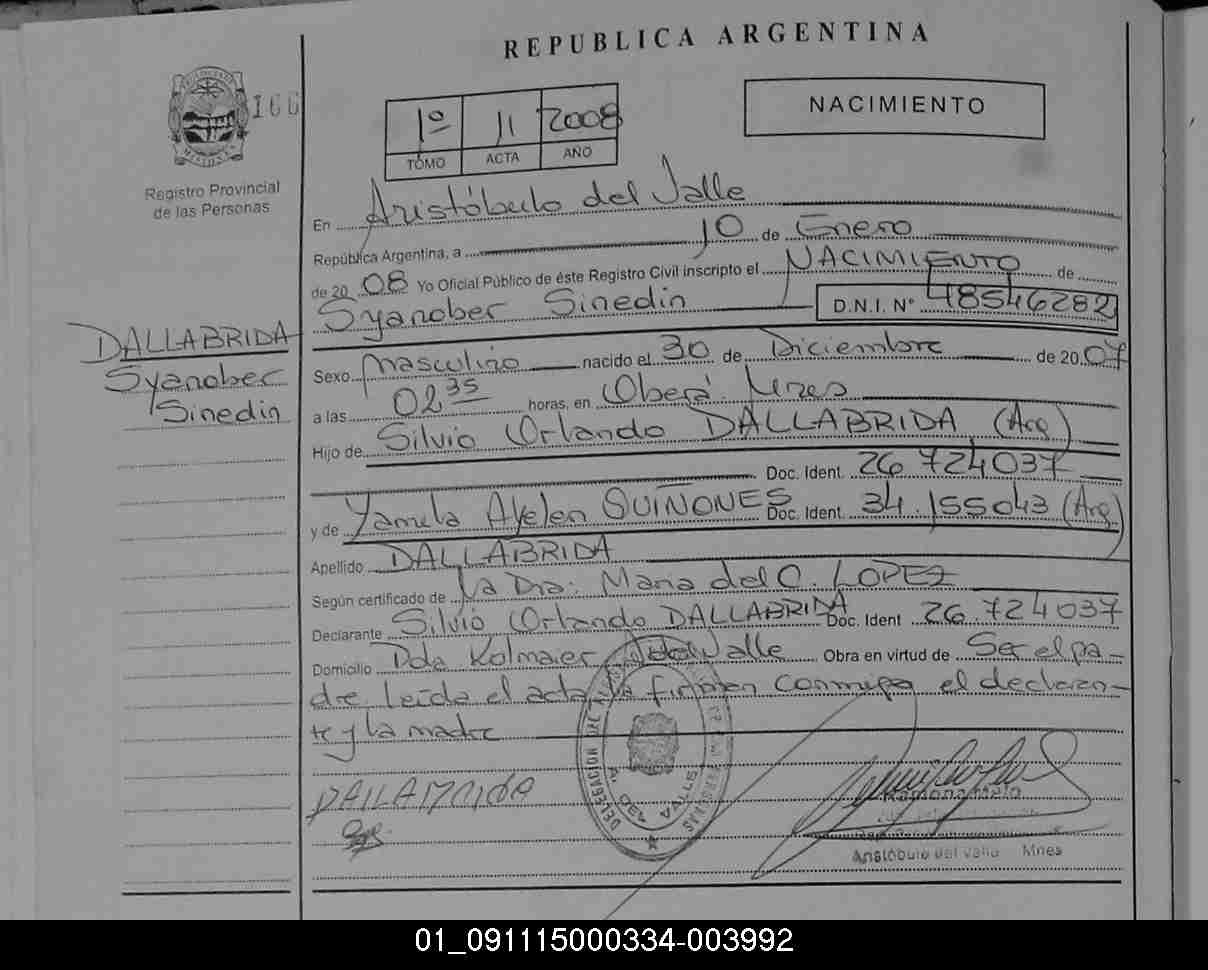 REPUBLICA ARGENTINA
166
1º 11 2008
TOMO ACTA AÑO
NACIMIENTO
Registro Provincial
de las Personas
En Aristóbulo del Valle
República Argentina, a 10 de Enero
de 20 08 Yo Oficial Público de éste Registro Civil inscripto el NACIMIENTO de
Syanober Sinedin D.N.I. Nº 48546282
DALLABRIDA
Syanober
Sinedin
Sexo masculino nacido el 30 de Diciembre de 20 07
a las 02 35 horas, en Oberá Mnes
Hijo de Silvio Orlando DALLABRIDA (Arg)
Doc. Ident. 26 724037
y de Yamila Ayelen QUIÑONES Doc. Ident. 34.155043 (Arg)
Apellido DALLABRIDA
Según certificado de La Dra: Maria del C. LOPEZ
Declarante Silvio Orlando DALLABRIDA Doc. Ident 26.724037
Domicilio Pda Kolmaier A del Valle Obra en virtud de Ser el pa-
dre. Leida el acta la firman conmigo el declaran-
te y la madre
DALLABRIDA
DELEGACION DE
A. DEL VALLE
Ramona Melo
Aristóbulo del Valle Mnes
01_091115000334-003992